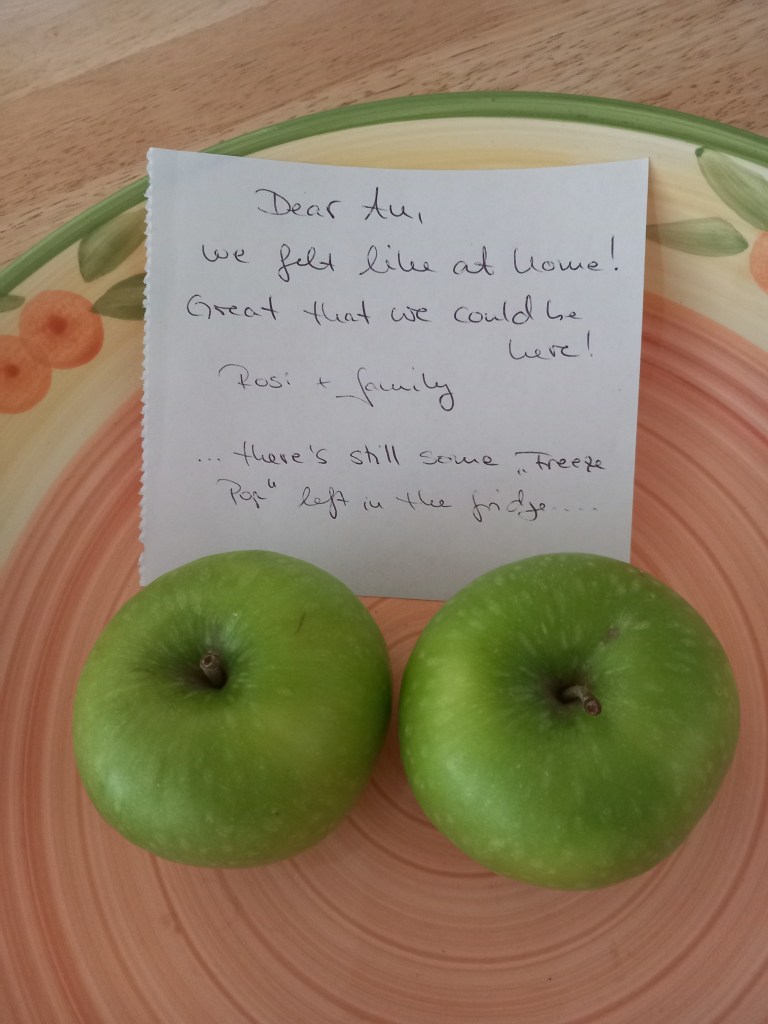 Dear Au,
we felt like at home!
Great that we could be
here!
Rosi + family
... there's still some „Freeze
Pop" left in the fridge.....